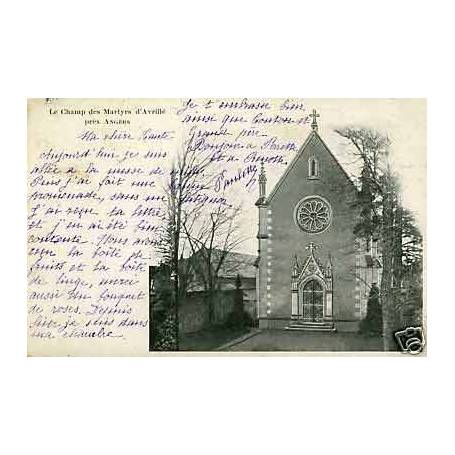 Le Champ des Martyrs d'Avrillé
près ANGERS
Ma chère Tante
aujourd'hui je suis
allée à la messe de
Puis j'ai fait une
promenade, sans un
J'ai reçu ta lettre
et j'en ai été bien
contente. Nous avons
reçu la boîte de
fruits et la boîte
de linge, merci
aussi un bouquet
de roses. Depuis
hier, je suis dans
ma chambre.
Je t'embrasse bien
ainsi que Tonton et
Grand père.
Bonjour à
et à